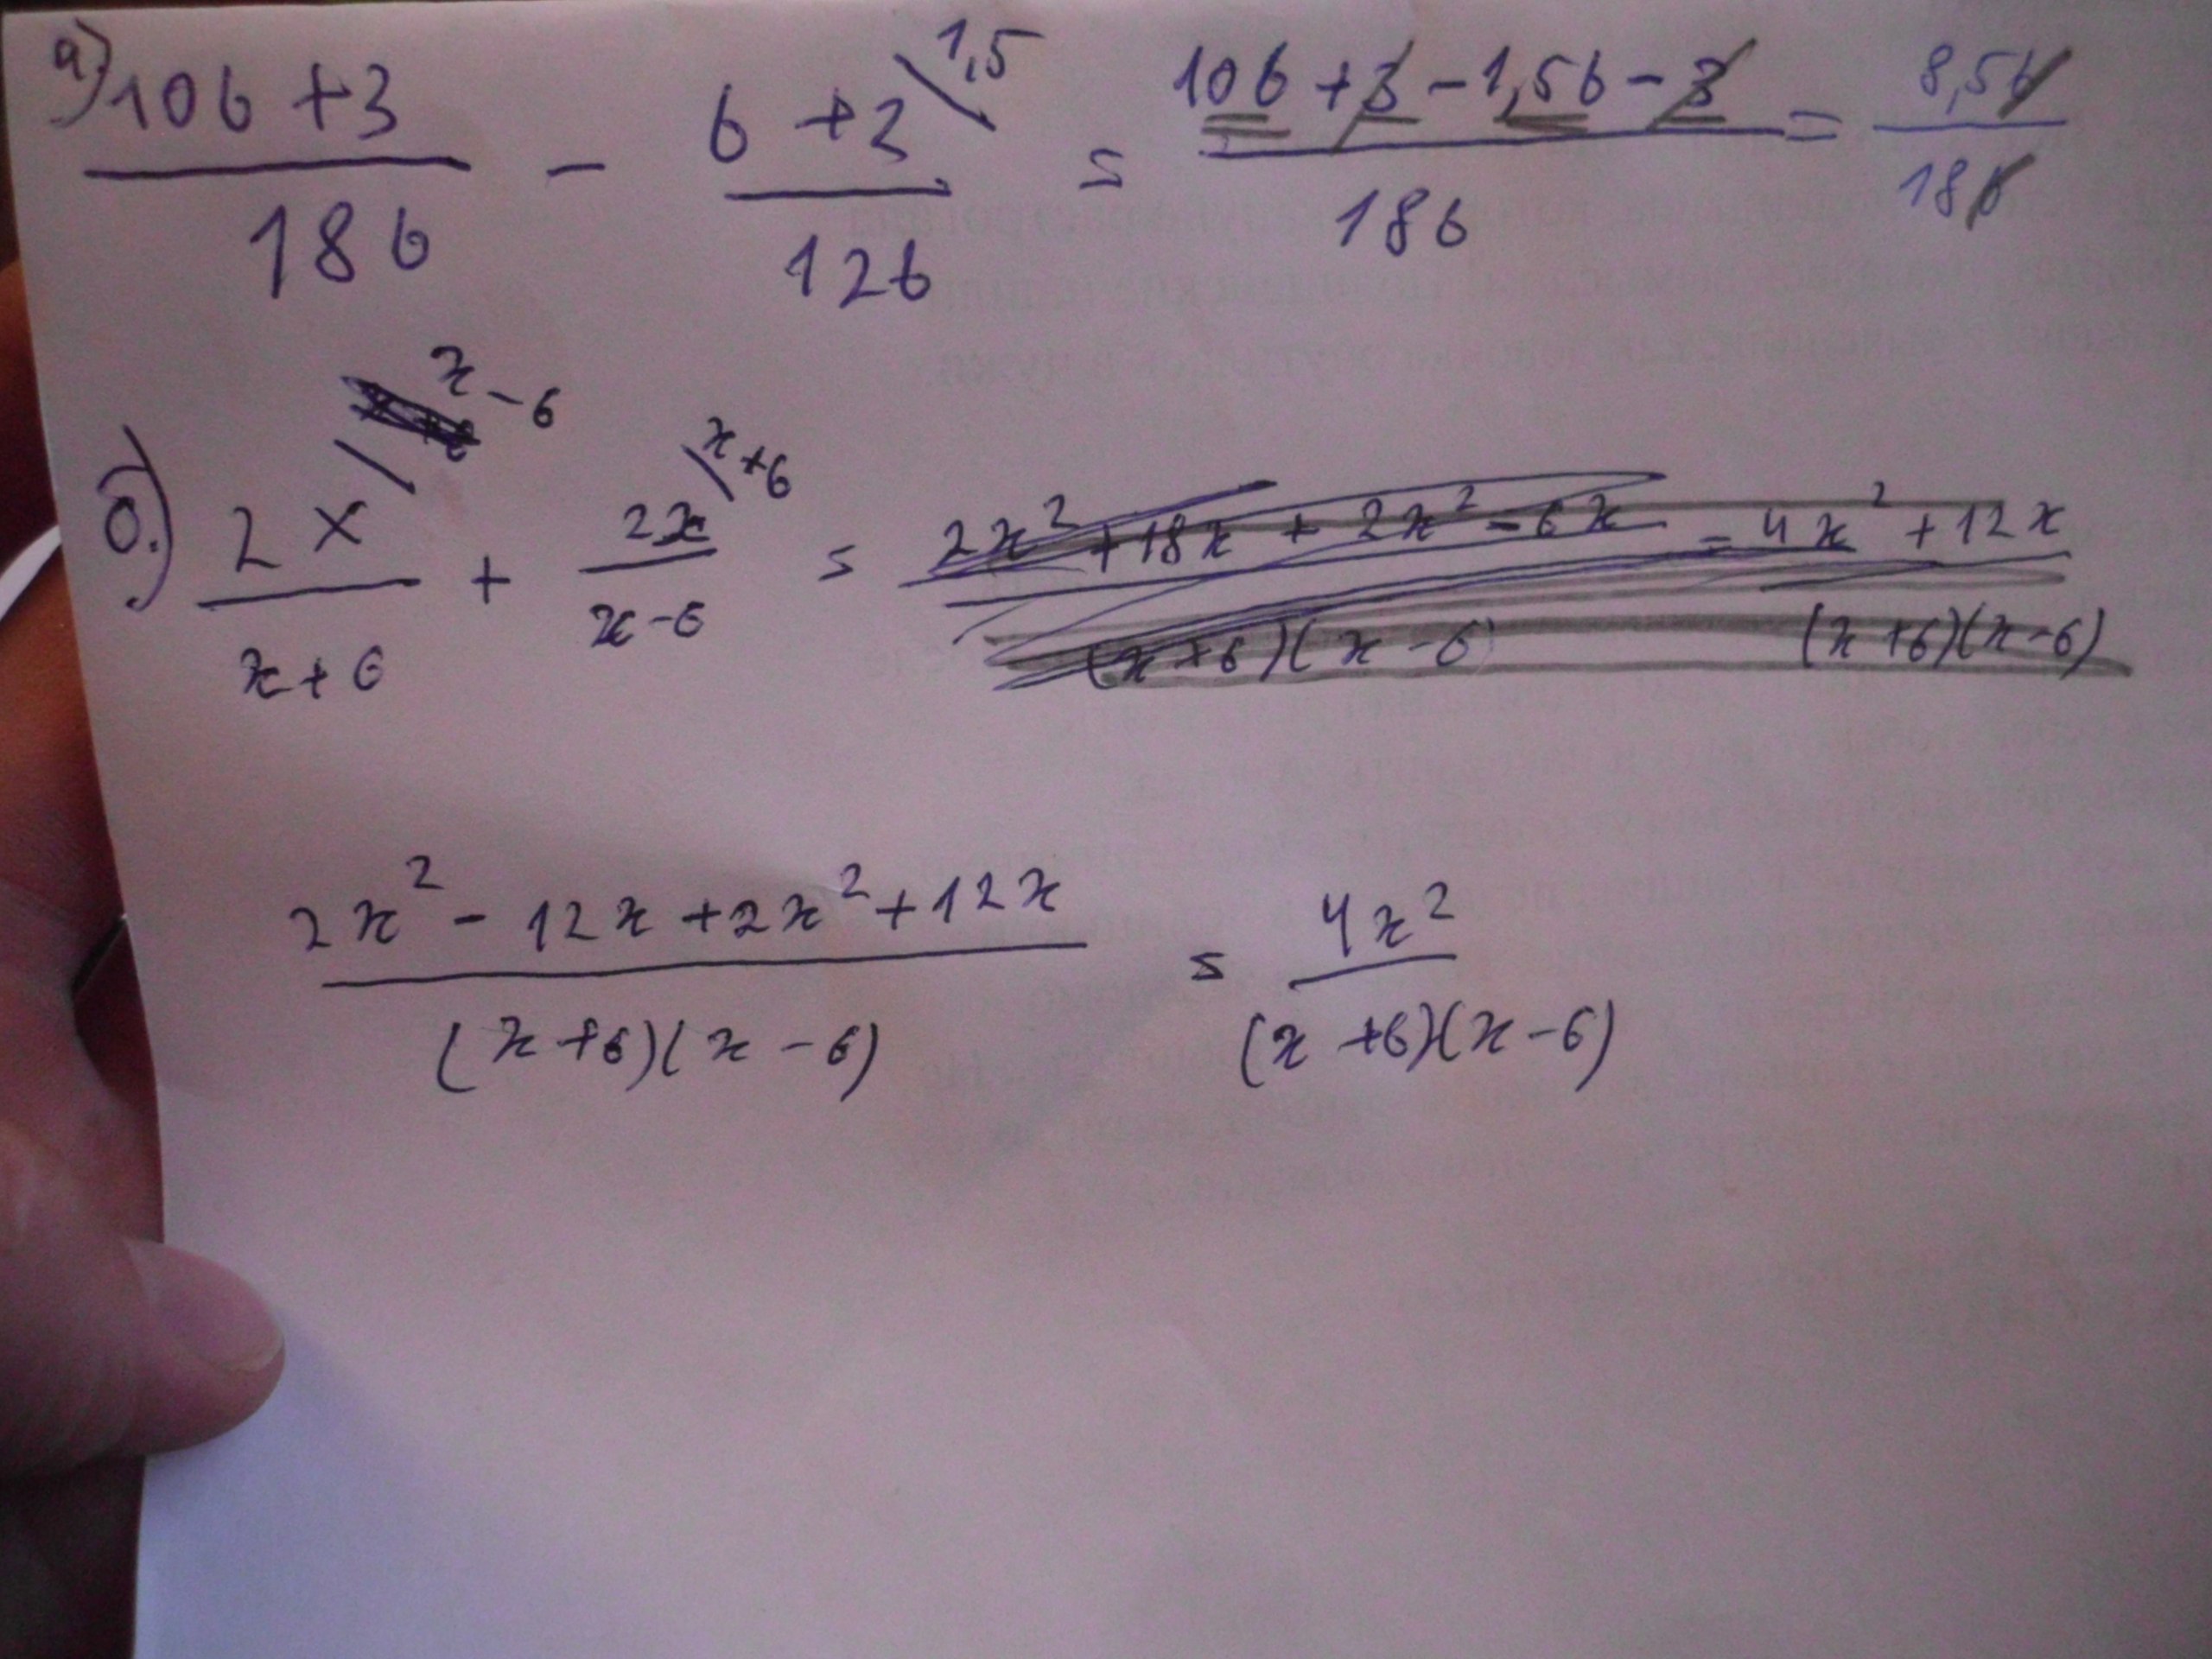 а) (10b + 3)/(18b) − (b + 2)/(12b) \ 1,5 = (10b + 3 − 1,5b − 3)/(18b) = 8,5b/18b
x − 6 x + 6
б.) 2x/(x + 6) + 2x/(x − 6) = (2x² + 18x + 2x² − 6x)/((x + 6)(x − 6) = (4x² + 12x)/((x + 6)(x − 6))
(2x² − 12x + 2x² + 12x)/((x + 6)(x − 6)) = 4x²/((x + 6)(x − 6))